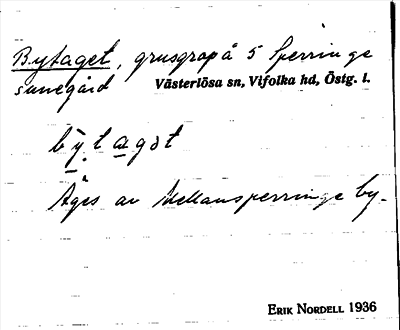 Bytaget, grusgrop å 5 Sperringe
sunegård Västerlösa sn, Vifolka hd, Östg. l.
bȳtagət
Äges av Mellansperringe by.
ERIK NORDELL 1936